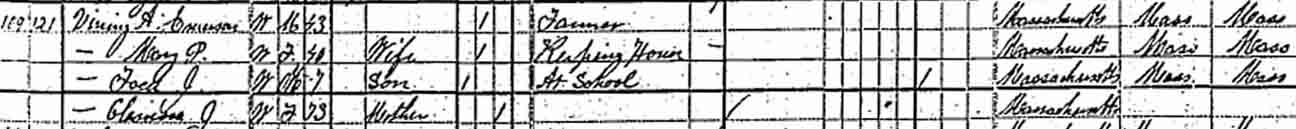 109 121 Vining A. W M 43 1 Farmer Massachusetts Mass Mass
— Mary P. W F 40 Wife 1 Keeping House — Massachusetts Mass Mass
— J. W M 7 Son 1 At School 1 Massachusetts Mass. Mass
— J W F 73 Mother 1 / Massachusetts